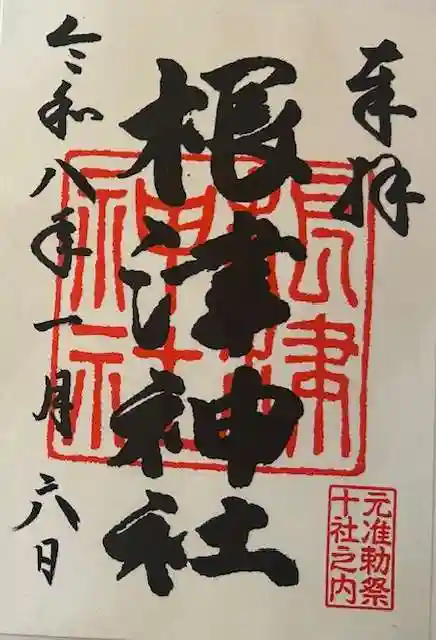 奉拝
根津神社
令和八年一月六日
根津
神社
元准勅祭
十社之内